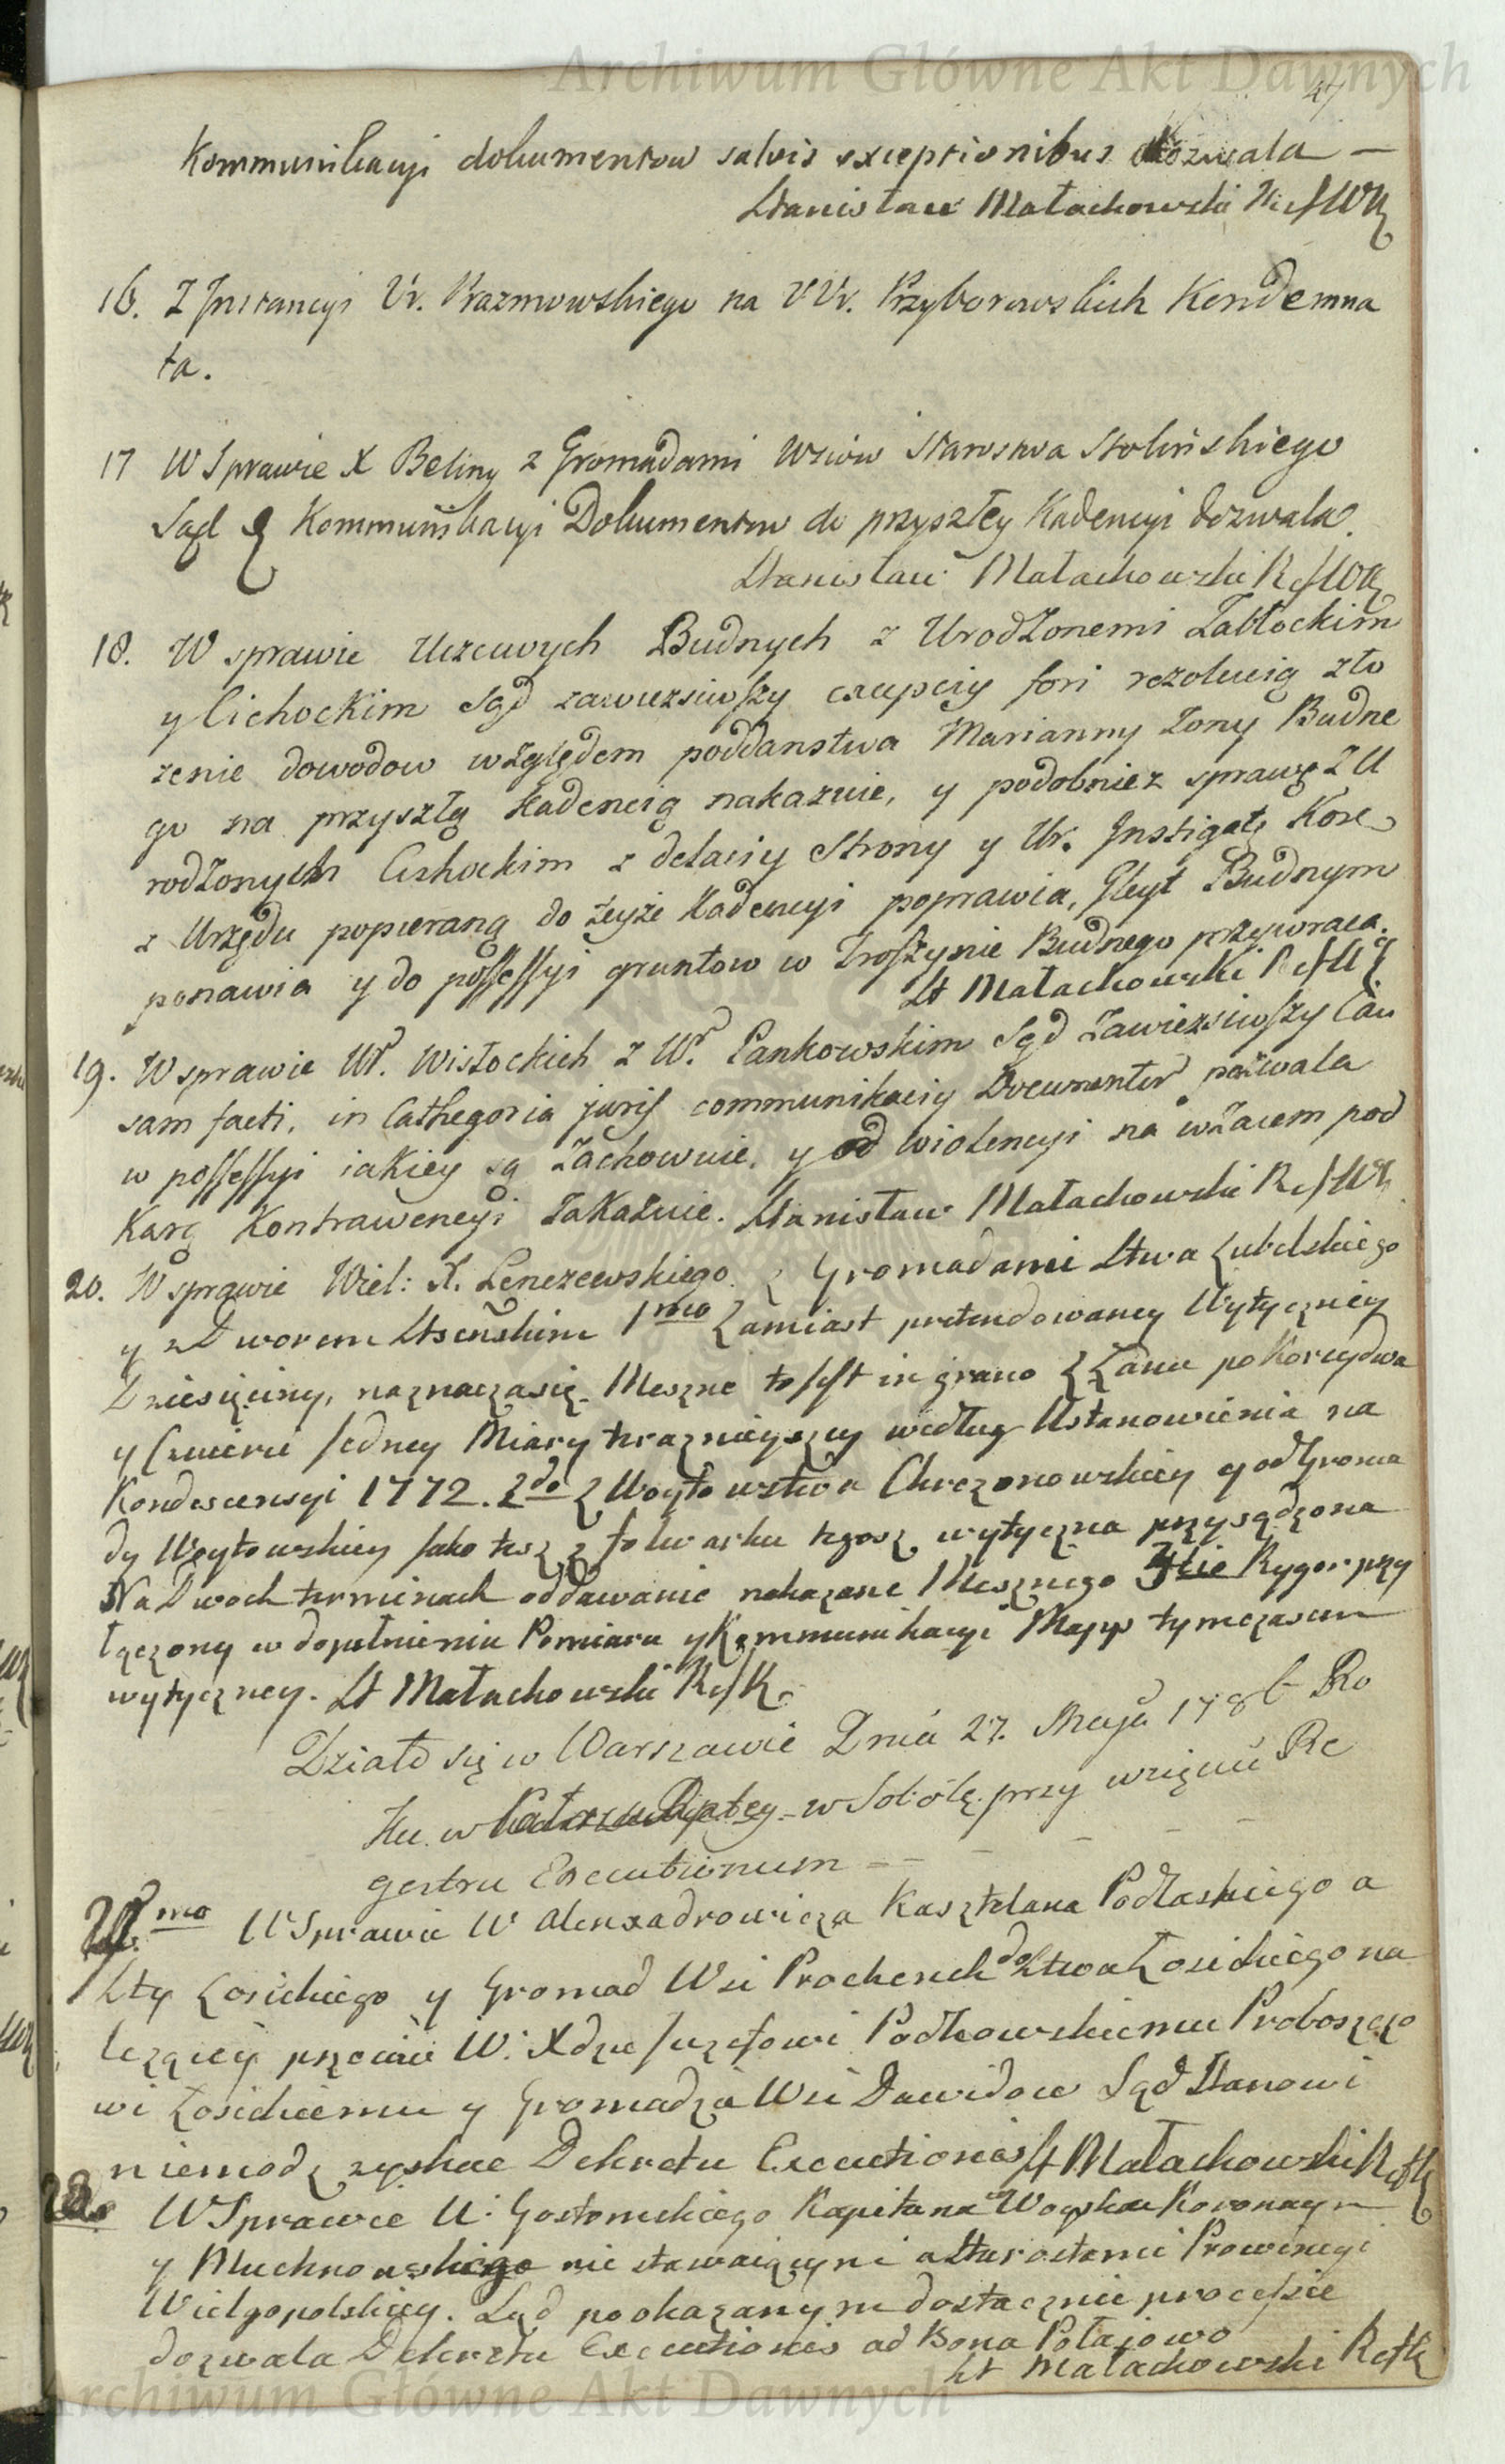 Archiwum Główne Akt Dawnych
47
Kommunikacyi dokumentow salvis exceptionibus dozwala —
Stanisław Małachowski RefWK
16. Z Jnstancyi Ur. Prazmowskiego na UUr. Przyborowskich Kondemna
ta.
17 W Sprawie X Beliny z Gromadami Wsiow Starostwa Stolińskiego
Sąd Kommunikacyi Dokumentow do przyszłey Kadencyi dozwala.
Stanisław Małachowski RefWK
18. W sprawie Uczciwych Budnych z Urodzonemi Zabłockim
y Cichockim Sąd zawiesiwszy excepciy fori rezolucią zło
zenie dowodow względem poddanstwa Marianny Zony Budne
go na przyszłą kadencią nakazuie, y podobniez sprawę z U
rodzonych Cichockim z delaciy Strony y Ur. Jnstigatę Kore
z Urzędu popieraną do teyże Kadencyi poprawia, Gleyt Budnym
ponawia y do possessyi gruntow w Troszynie Budnego przywraca.
St Małachowski RefWK
19. W sprawie Ur. Wisłockich z Wr. Pankowskim Sąd Zawiesiwszy Cau
sam facti, in Cathegoria juris communikaciy Documentow pozwala
w possessyi iakiey są Zachowuie, y od wiolencyi na wzaiem pod
Karą Kontrawencyi Zakazuie. Stanisław Małachowski RefWK
20. W sprawie Wiel: X. Lenczewskiego z Gromadami Stwa Lubelskiego
y z Dworem 1mo Zamiast pretendowaney Wytyczney
Dziesięciny, naznacza się Meszne to Jest in grano z Łanu po Korcy dwa
y Cwierci Jedney Miary terazniejszey według Ustanowienia na
Kondescensyi 1772. 2do z Woytowstwa Chrzonowskiey y od Groma
dy Woytowskiey Jako tesz z folwarku tegosz wytyczna przysądzona
Na Dwoch terminach oddawanie nakazane Mesznego 3tie Rygor przy
łączony w dopełnieniu Pomiaru y Kommunikacyi Mapp tymczasem
wytyczney. St Małachowski RefK
Działo się w Warszawie Dnia 27. Maja 1786 Ro
ku w w Sobotę przy wzięciu Re
gestru Executionum — —
21mo W Sprawie W Alexadrowicza Kasztelana Podlaskiego a
Stty Łosickiego y Gromad Wsi Prochenek do Stwa Łosickiego na
lezącey przeciw W: Xdzu Juzefowi Padkowskiemu Proboszczo
wi Łosickiemu y Gromadzie Wsi Dawidow Sąd Stanowi
niemodz zyskac Dekretu Executionis St Małachowski RefK
22do W Sprawie U: Gostomskiego Kapitana Woyska Koronnym
y nie stawaiącymi a Starostami Prowincyi
Wielgopolskiey. Sąd po okazanym dostatecznie processie
dozwala Dekretu Executionis ad Bona Połajowo
St Małachowski RefK
Archiwum Główne Akt Dawnych